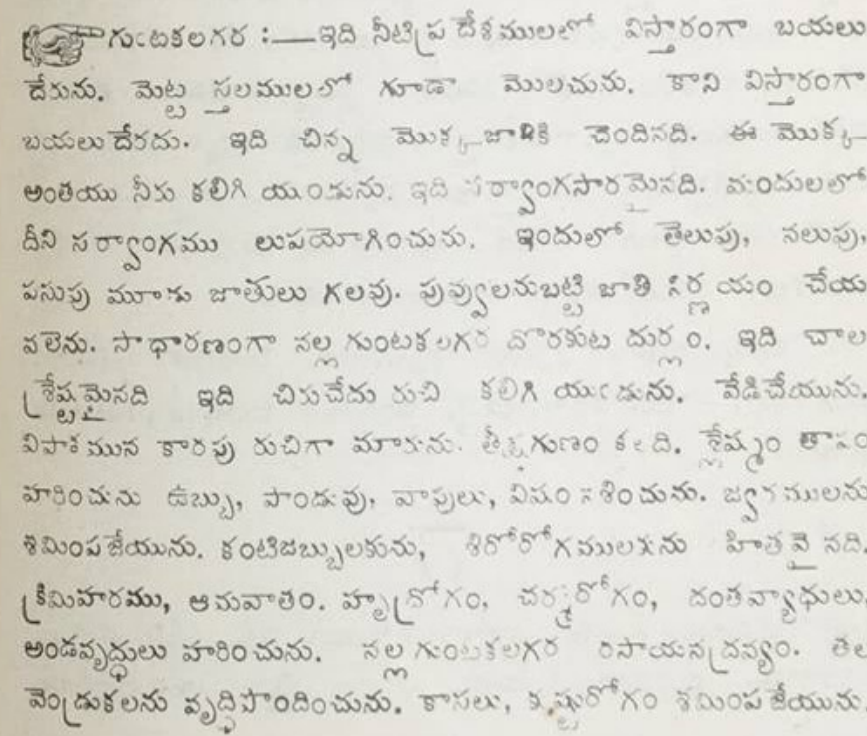 గుంటకలగర :—ఇది నీటిప్రదేశములలో విస్తారంగా బయలు
దేరును. మెట్ట స్తలములలో గూడా మొలచును. కాని విస్తారంగా
బయలుదేరదు. ఇది చిన్న మొక్కజాతికి చెందినది. ఈ మొక్క
అంతయు నీరు కలిగి యుండును. ఇది సర్వాంగసారమైనది. మందులలో
దీని సర్వాంగము లుపయోగించును. ఇందులో తెలుపు, నలుపు,
పసుపు మూడు జాతులు గలవు. పువ్వులనుబట్టి జాతి నిర్ణయం చేయ
వలెను. సాధారణంగా నల్ల గుంటకలగర దొరకుట దుర్లం. ఇది చాల
శ్రేష్టమైనది ఇది చిరుచేదు రుచి కలిగి యుండును. వేడిచేయును.
విపాకమున కారపు రుచిగా మారును. తీక్ష్ణగుణం కలది. శ్లేష్మం తాపం
హరించును ఉబ్బు, పాండువు, వాపులు, విషం నశించును. జ్వరములను
శమింపజేయును. కంటిజబ్బులకును, శిరోరోగములకును హితవై నది.
క్రిమిహరము, ఆమవాతం. హృద్రోగం, చర్మరోగం, దంతవ్యాధులు,
అండవృద్ధులు హరించును. నల్లగుంటకలగర రసాయనద్రవ్యం. తల
వెండ్రుకలను వృద్ధిపొందించును. కాసలు, కుష్టురోగం శమింపజేయును.